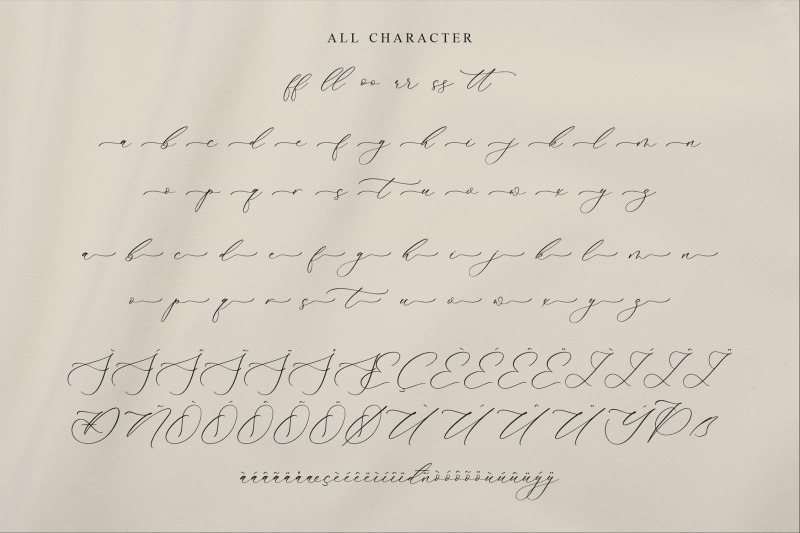 ALL CHARACTER
ff ll oo rr ss tt
a b c d e f g h i j k l m n
o p q r s t u v w x y z
a b c d e f g h i j k l m n
o p q r s t u v w x y z
À Á Â Ã Ä Å Æ Ç È É Ê Ë Ì Í Î Ï
Ð Ñ Ò Ó Ô Õ Ö Ø Ù Ú Û Ü Ý Þ ß
àáâãäåæçèéêëìíîïðñòóôõöùúûüýÿ